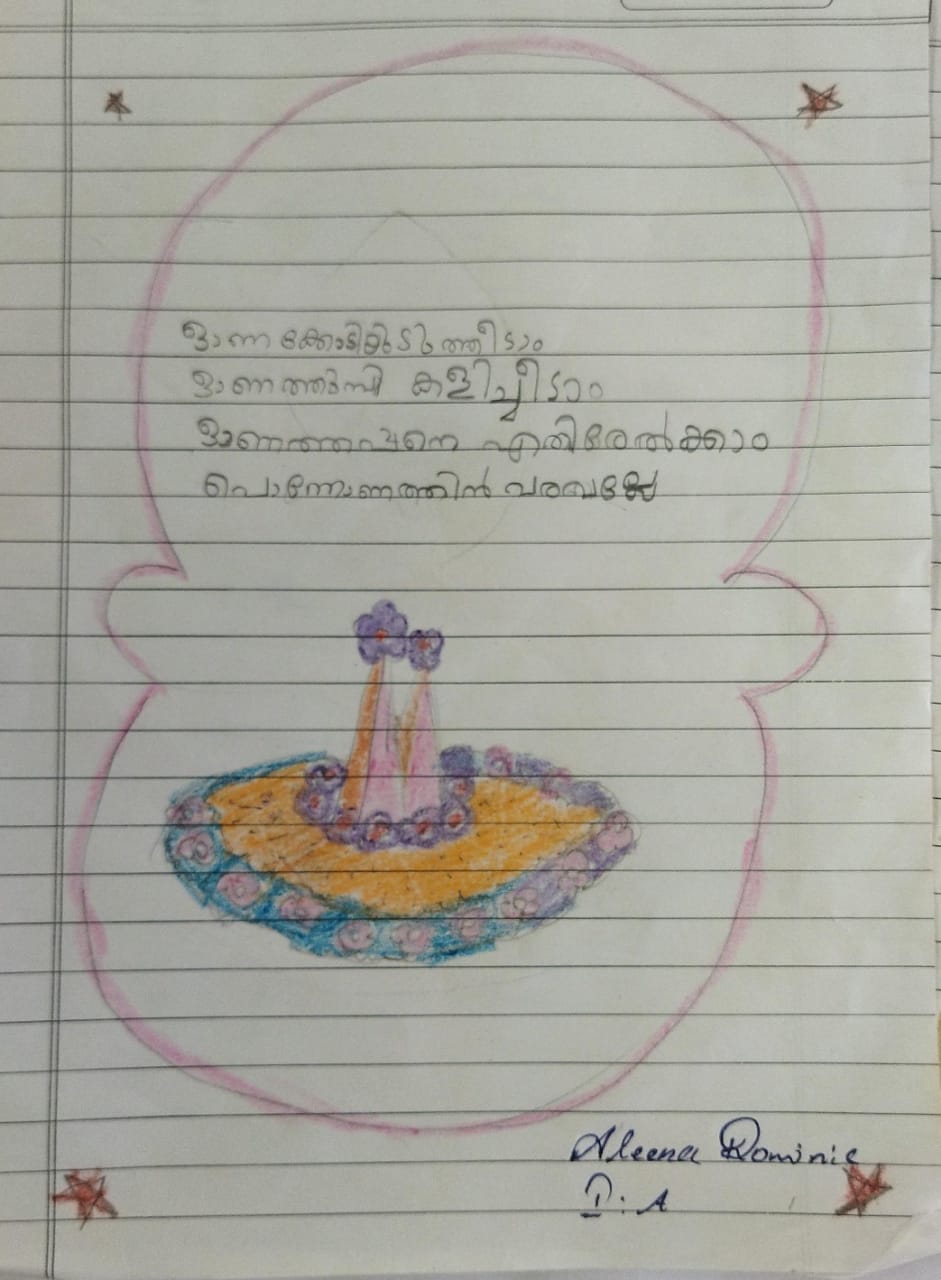 ഓണക്കോടിയുടുത്തീടാം
ഓണത്തുമ്പി കളിച്ചീടാം
ഓണത്തപ്പനെ എതിരേൽക്കാം
പൊന്നോണത്തിൻ
Aleena Dominic
I: A